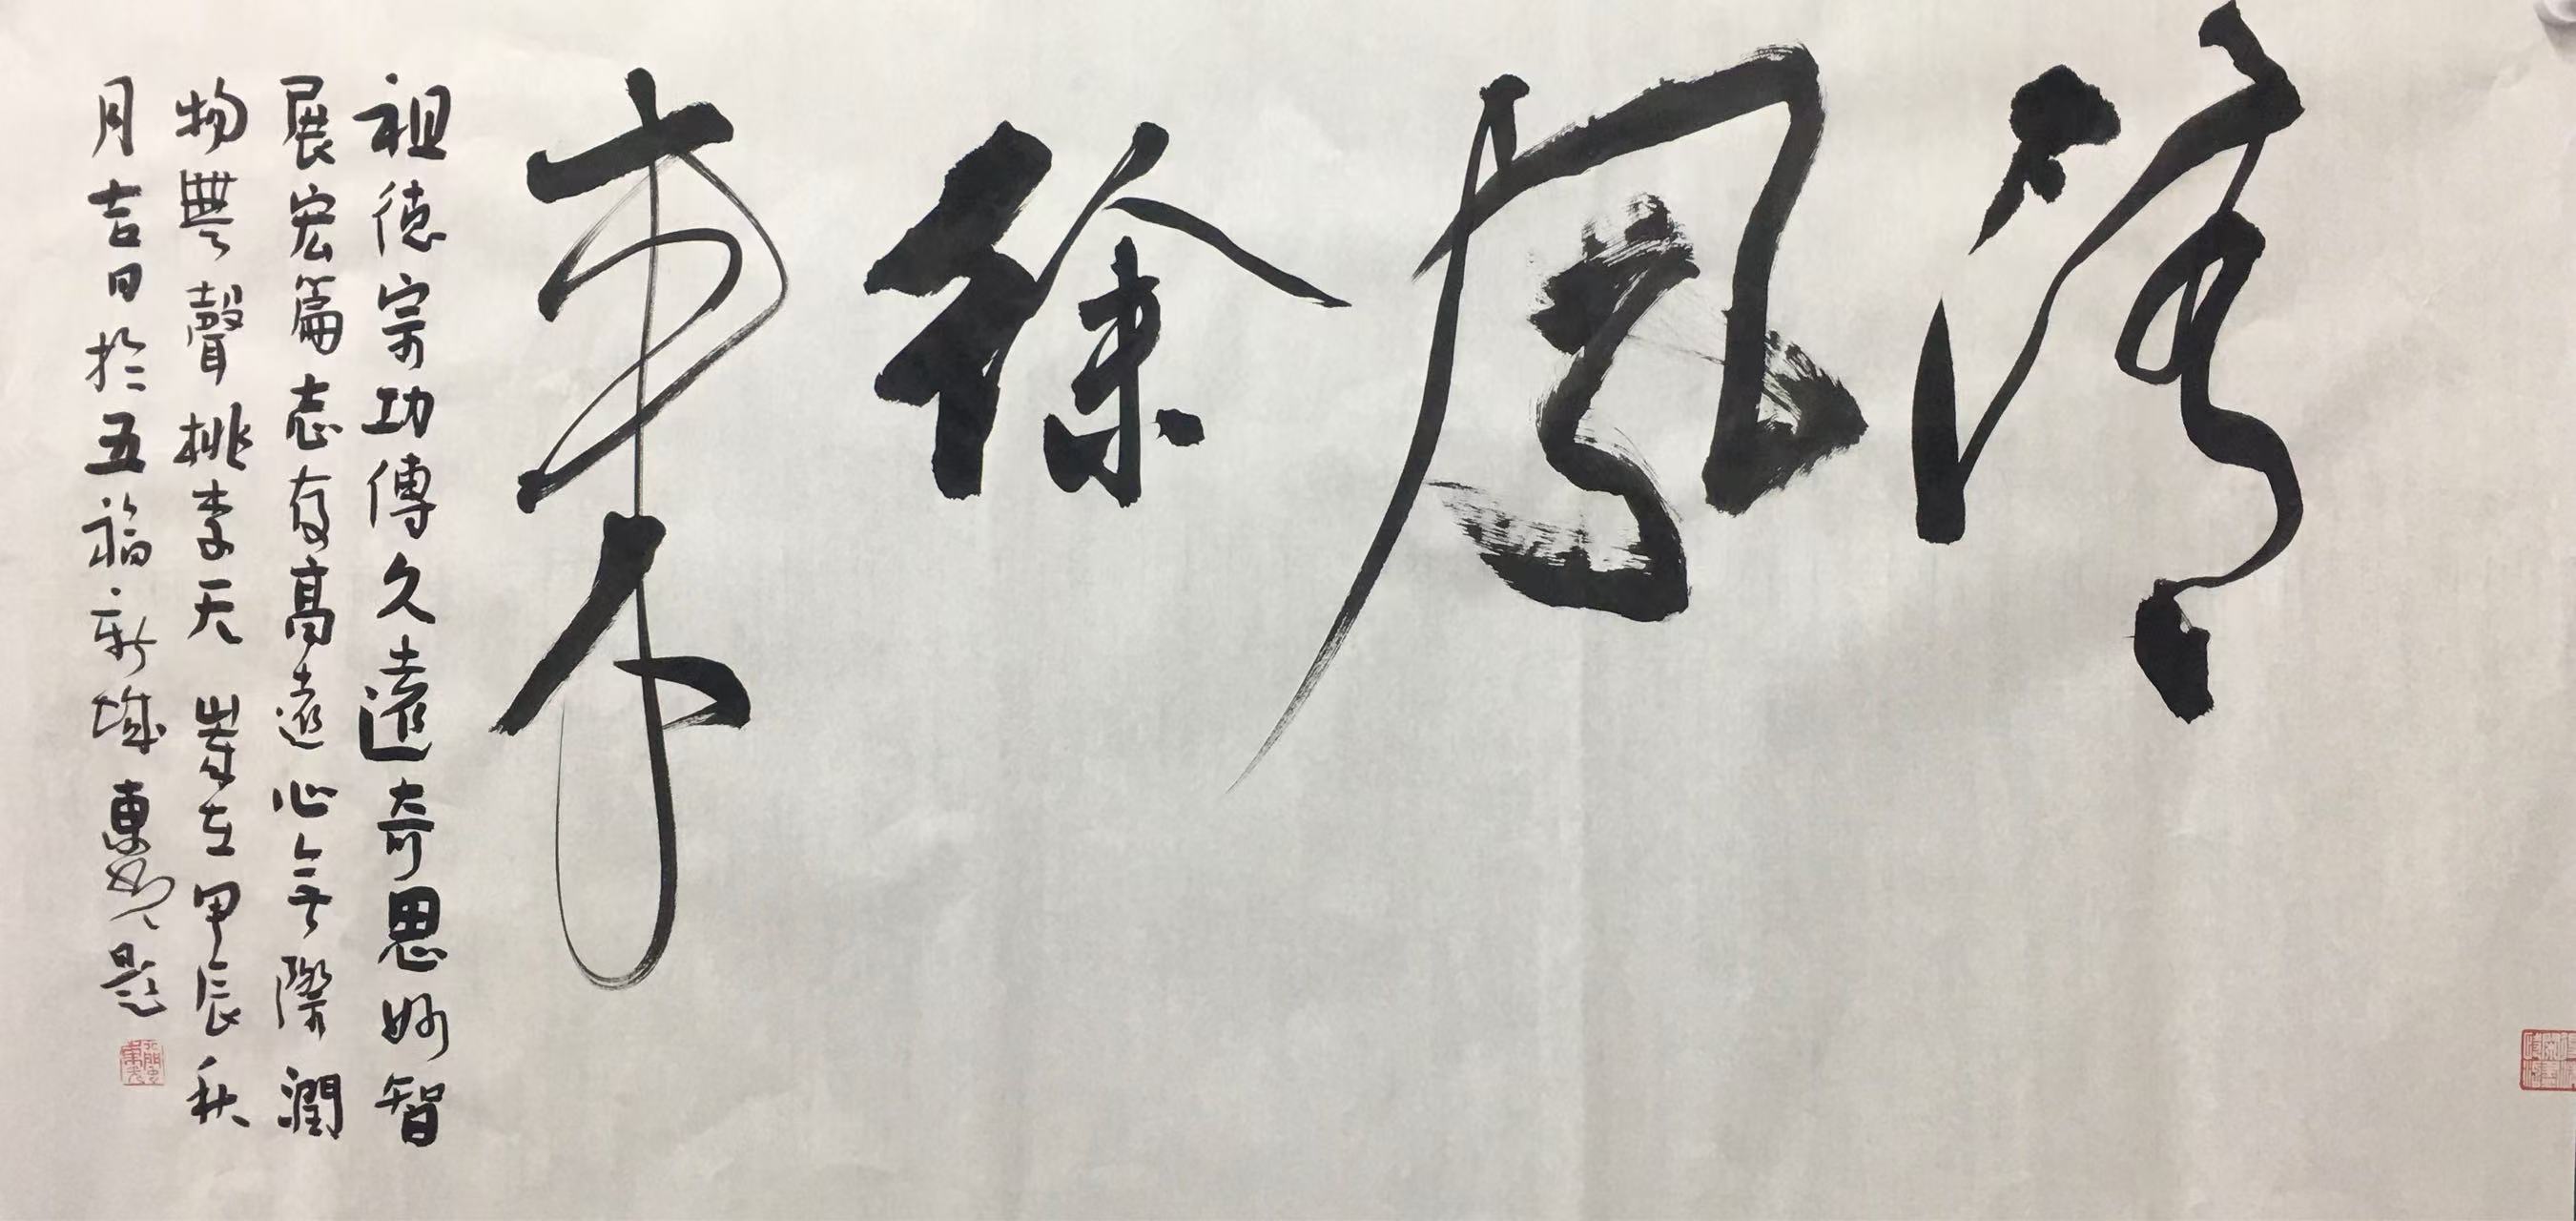 清風徐來
祖德宗功傳久遠奇思妙智
展宏篇志存高遠心無際潤
物無聲桃李天 歲在甲辰秋
月吉日於五福新城東 題